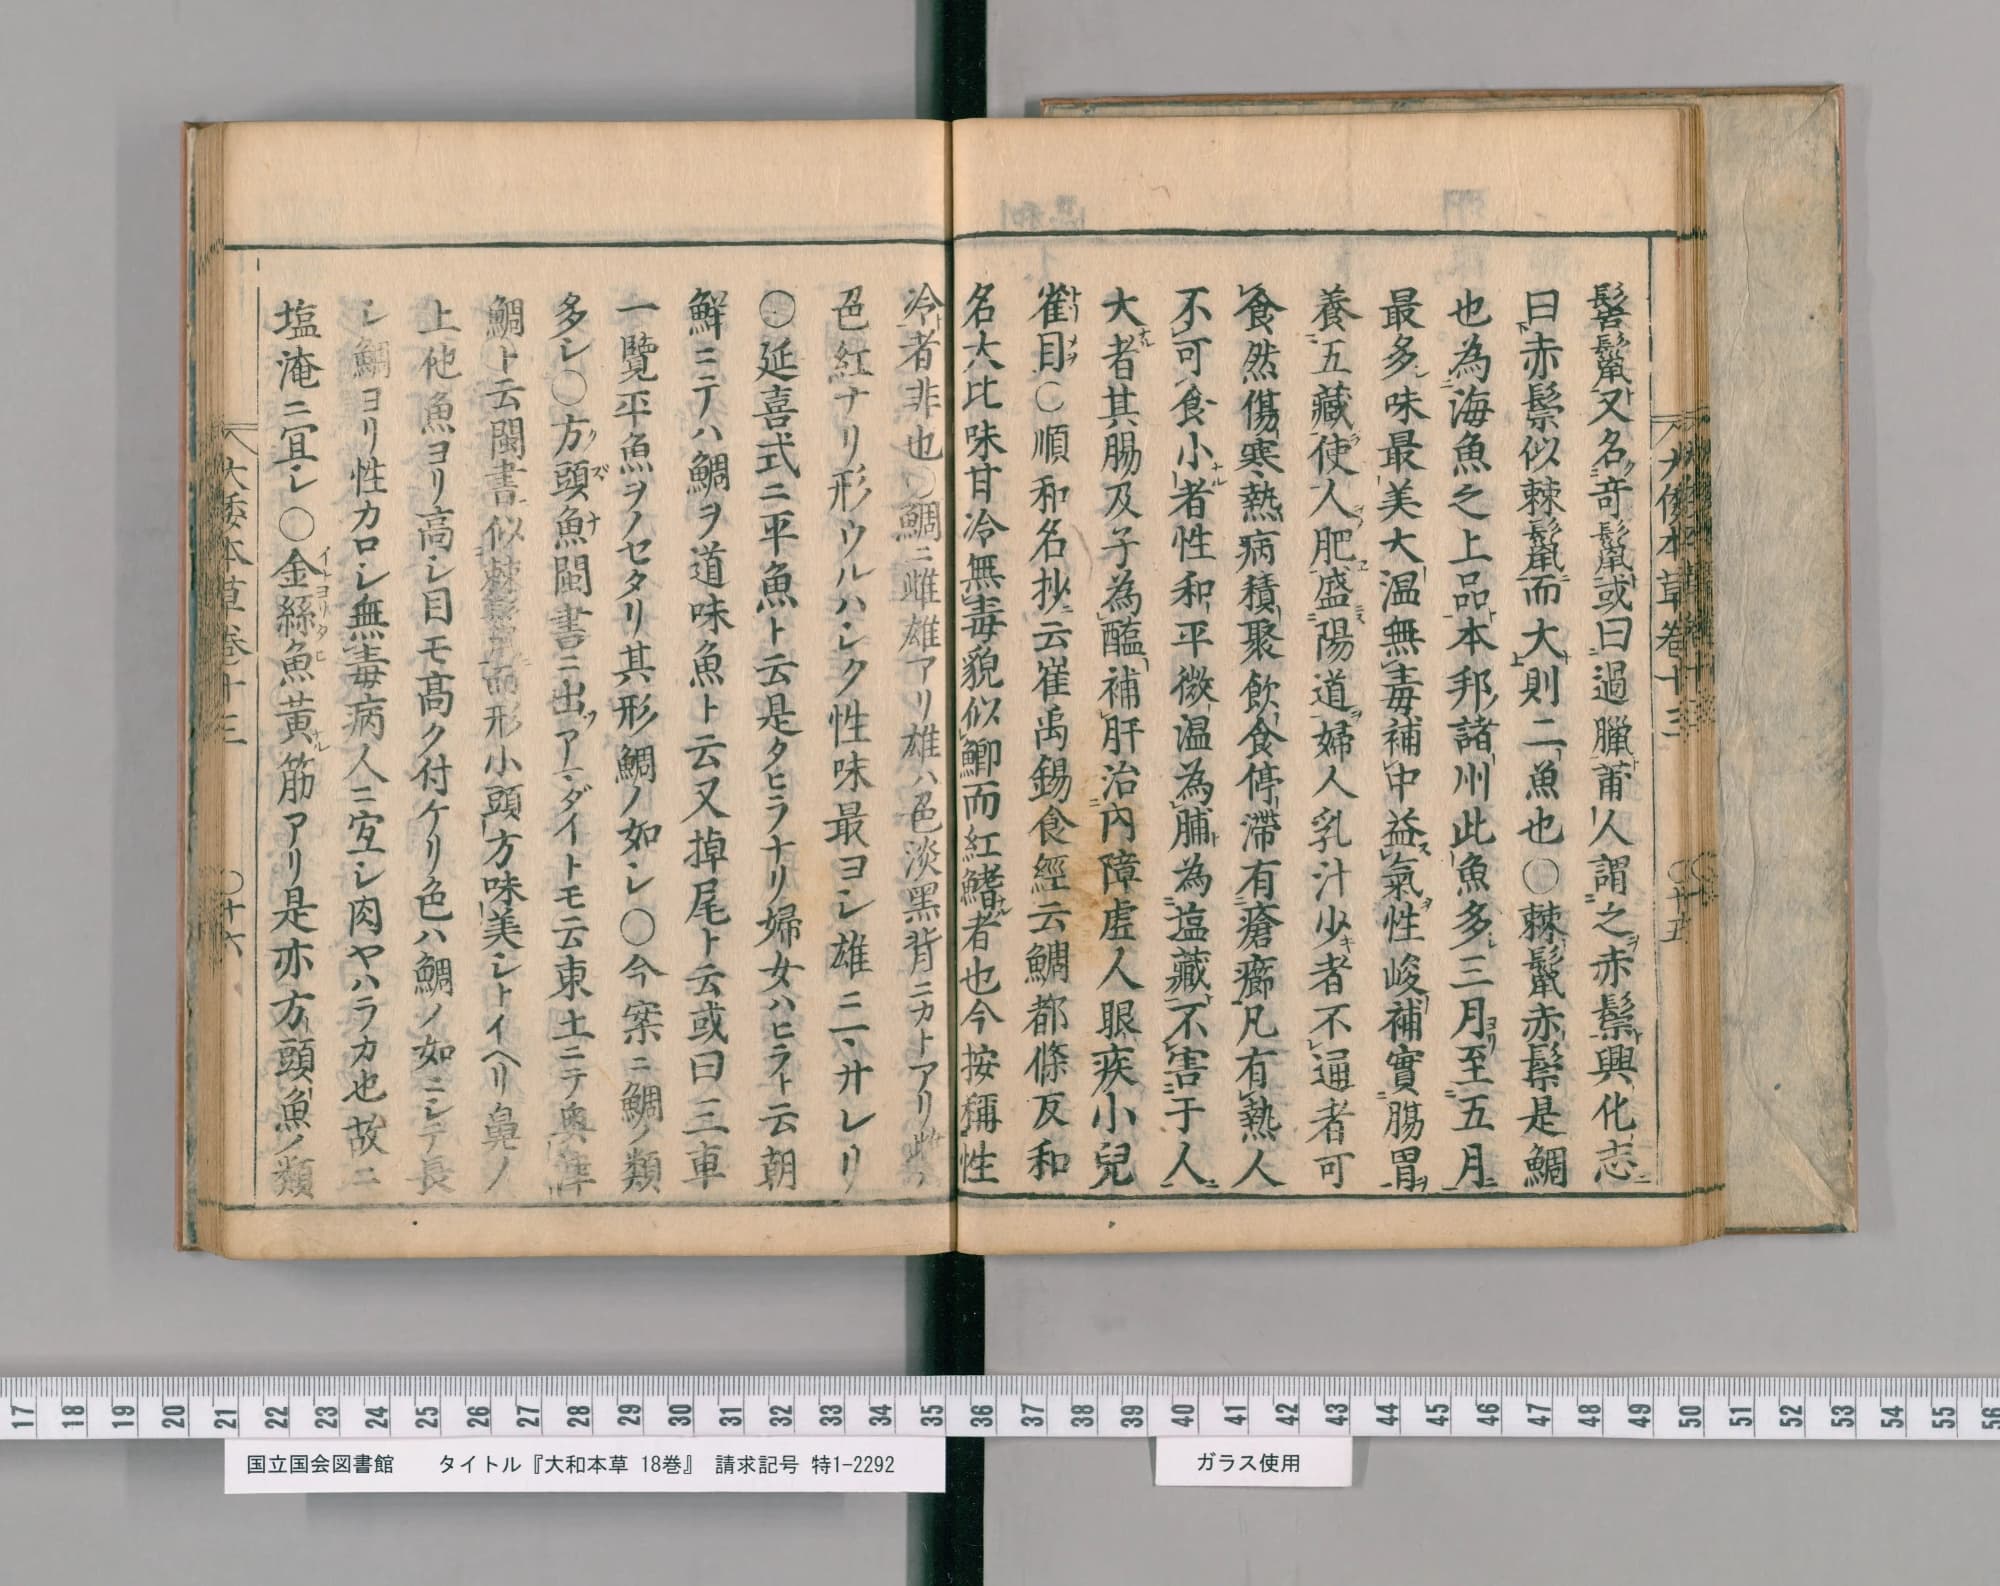 大倭本草卷十三 〇十五
鬐鬣又名奇鬣或曰過臘莆人謂之赤鬃興化志
曰赤鬃似棘鬣而大則二魚也〇棘鬣赤鬃是鯛
也為海魚之上品本邦諸州此魚多三月ヨリ至五月
最多味最美大温無毒補中益氣性峻補實腸胃
養五藏使人肥盛陽道婦人乳汁少者不通者可
食然傷寒熱病積聚飲食停滯有瘡癤凡有熱人
不可食小者性和平微温為脯為塩藏不害于人
大者其腸及子為醢補肝治内障虚人眼疾小兒
雀目〇順和名抄云崔禹錫食經云鯛都條反和
名太比味甘冷無毒貌似鯽而紅鰭者也今按稱性
冷者非也〇鯛ニ雌雄アリ雄ハ色淡黒背ニカトアリ雌ハ
色紅ナリ形ウルハシク性味最ヨシ雄ニマサレリ
〇延喜式ニ平魚ト云是タヒラナリ婦女ハヒラト云朝
鮮ニテハ鯛ヲ道味魚ト云又掉尾ト云或曰三車
一覽平魚ヲノセタリ其形鯛ノ如シ〇今案ニ鯛ノ類
多シ〇方頭魚閩書ニ出アマダイトモ云東土ニテ奥津
鯛ト云閩書似棘鬣而形小頭方味美シトイヘリ鼻ノ
上他魚ヨリ高シ目モ高ク付ケリ色ハ鯛ノ如ニシテ長
シ鯛ヨリ性カロシ無毒病人ニ宜シ肉ヤハラカ也故ニ
塩淹ニ宜シ〇金絲魚黄筋アリ是亦方頭魚ノ類
大倭本草卷十三 〇十六
国立国会図書館 タイトル『大和本草 18巻』 請求記号 特1-2292
ガラス使用
17 18 19 20 21 22 23 24 25 26 27 28 29 30 31 32 33 34 35 36 37 38 39 40 41 42 43 44 45 46 47 48 49 50 51 52 53 54 55 56